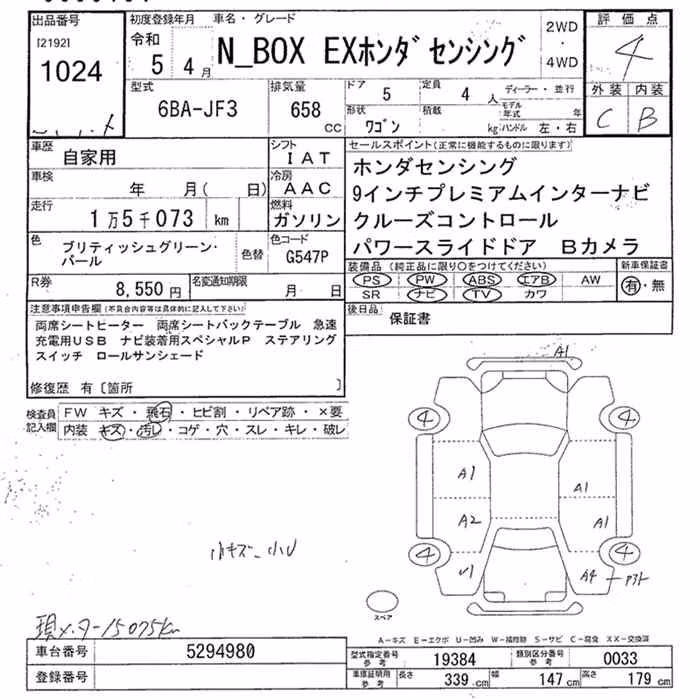 出品番号
[2192]
1024
初度登録年月
令和
5 4月
車名・グレード
N_BOX EXホンダセンシング
2WD
・
4WD
評価点
4
外装 内装
C B
型式
6BA-JF3
排気量
658
cc
ドア
5
定員
4
人
形状
ワゴン
積載
kg
ディーラー・並行
モデル年式 年
ハンドル 左・右
車歴
自家用
シフト
IAT
車検
年 月( 日)
冷房
AAC
走行
1万5千073 km
燃料
ガソリン
色
ブリティッシュグリーン・
パール
色替
色コード
G547P
R券
8,550円
名変通知期限
月 日
セールスポイント(正常に機能するものに限ります)
ホンダセンシング
9インチプレミアムインターナビ
クルーズコントロール
パワースライドドア Bカメラ
装備品(純正品に限り○をつけてください)
PS PW ABS エアB AW
SR ナビ TV カワ
新車保証書
有・無
後日品
保証書
注意事項申告欄(不具合内容等は具体的に記入して下さい)
両席シートヒーター 両席シートバックテーブル 急速
充電用USB ナビ装着用スペシャルP ステアリング
スイッチ ロールサンシェード
修復歴 有〔箇所 〕
検査員
記入欄
FW キズ・飛石・ヒビ割・リペア跡・×要
内装 キズ・汚レ・コゲ・穴・スレ・キレ・破レ
A1
4 4
A1
A1
A2 A1
4 4
V1 A4
小キズ、小U
スペア
現メーター15075km
A-キズ E-エクボ U-凹み W-補修跡 S-サビ C-腐食 XX-交換済
車台番号 5294980
登録番号
型式指定番号
参考
19384
類別区分番号
参考
0033
車庫証明用
参考
長さ 339cm 幅 147cm 高さ 179cm